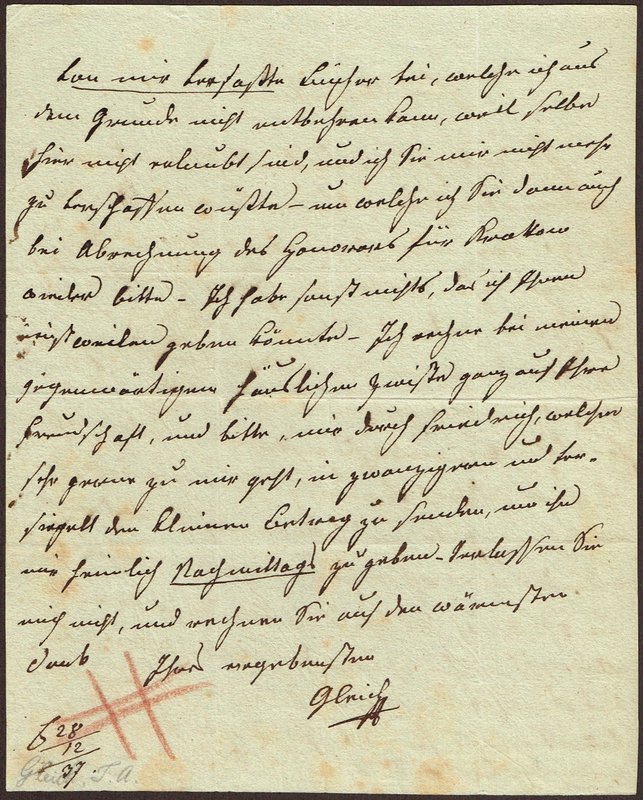 von mir verfaßte Bücher bei, welche ich aus
dem Grunde nicht entbehren kann, weil selbe
hier nicht erlaubt sind, und ich Sie mir nicht mehr
zu verschaffen wüßte – um welche ich Sie dann auch
bei Abrechnung des Honorars für Krakau
wieder bitte – Ich habe sonst nichts, das ich Ihnen
einstweilen geben könnte – Ich rechne bei meinem
gegenwärtigen häuslichen Zwiste ganz auf Ihre
Freundschaft, und bitte, mir durch Friedrich, welcher
sehr gerne zu mir geht, in zwanzigern und ver-
siegelt den kleinen Betrag zu senden, um ihn
mir heimlich Nachmittags zu geben – Verlassen Sie
mich nicht, und rechnen Sie auf den wärmsten
Dank Ihres ergebensten
Gleich
28
12
37
Gleich, J. A.